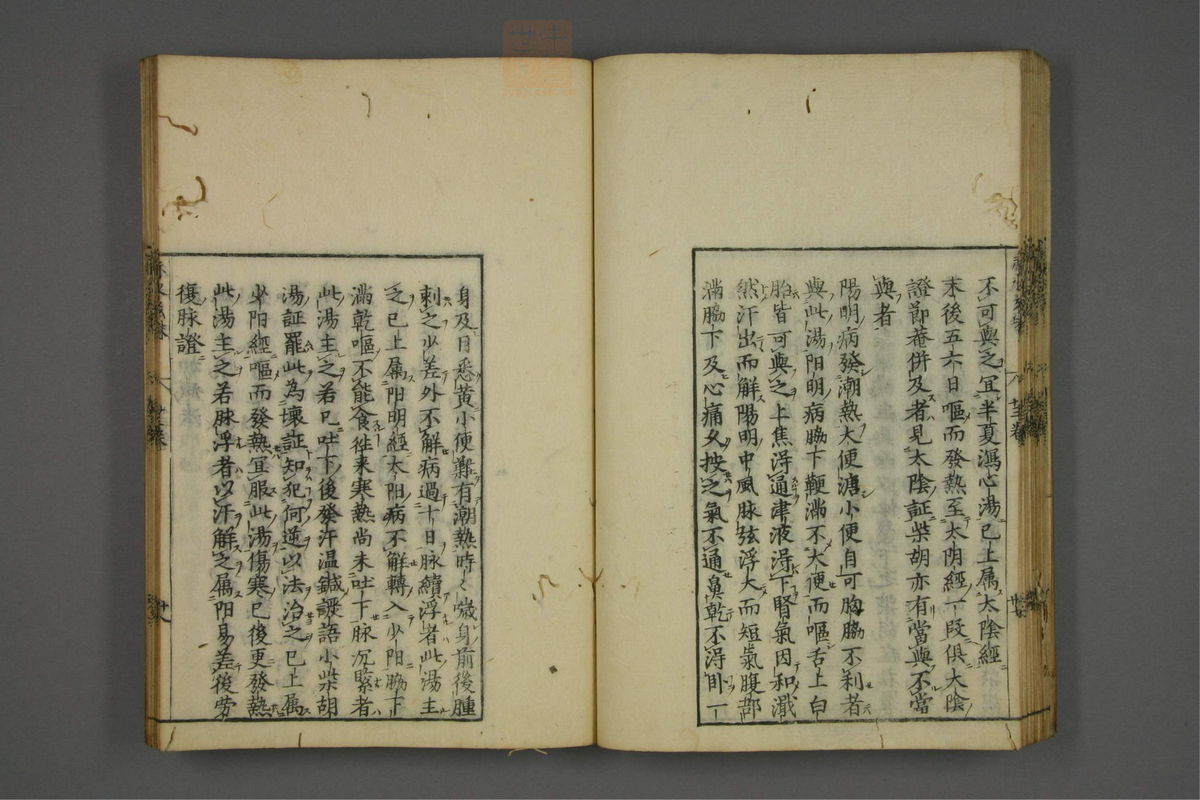 不可與之宜半夏瀉心湯已上属太陰經
末後五六日嘔而發熱至太阴經一段俱太陰
證節菴併及者見太陰証柴胡亦有當與不當
與者
陽明病發潮熱大便溏小便自可胸脇不刹者
與此湯阳明病脇下鞕滿不大便而嘔舌上白
胎皆可與之上焦淂通津液淂下腎氣因和濈
然汗出而解陽明中風脉弦浮大而短氣腹部
滿脇下及心痛久按之氣不通鼻乾不淂卧一
身及目悉黄小便難有潮熱時〻噦身前後腫
刺之少差外不解病過十日脉續浮者此湯主
之已上属阳明經太阳病不解轉入少阳脇下
滿乾嘔不能食徃来寒熱尚未吐下脉沉緊者
此湯主之若已吐下後發汗温鍼譫語小柴胡
湯証罷此為壞証知犯何逆以法治之已上属
少阳經嘔而發熱宜服此湯傷寒已後更發熱
此湯主之若脉浮者以汗解之属阳易差後劳
復脉證